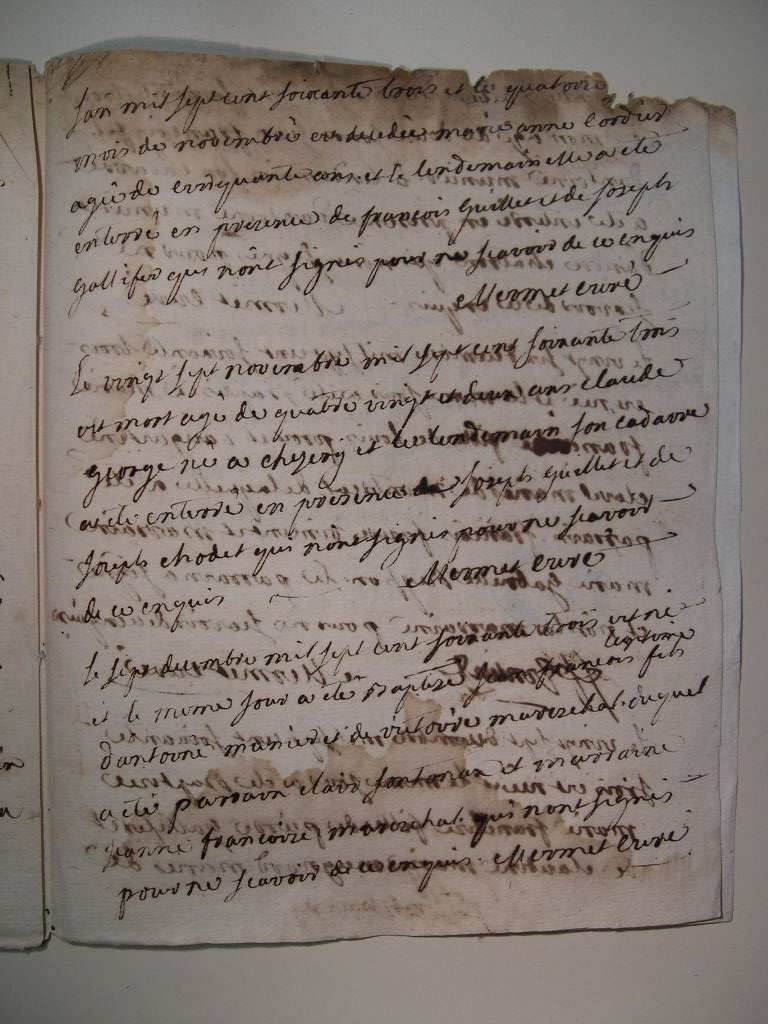 L'an mil sept cent soixante trois et le quatorze
mois de novembre est decedée marie anne Cordier
agée de cinquante ans et le lendemain elle a été
enterré en presence de françois Guillet et de Joseph
Gallifer qui n'ont signés pour ne scavoir de ce enquis
Mermet curé
Le vingt sept novembre mil sept cent soixante trois
est mort agé de quatre vingt et deux ans claude
george né a chezery et le lendemain son cadavre
a été enterré en presence de Joseph Guillet et de
Joseph chodet qui n'ont signés pour ne scavoir
de ce enquis Mermet curé
le sept decembre mil sept cent soixante trois est né
et le meme jour a été baptisé françois fils legitime
d'antoine munier et de victoire mareschal duquel
a été parrain clair et marraine
jeanne françoise mareschal qui n'ont signés
pour ne scavoir de ce enquis Mermet curé